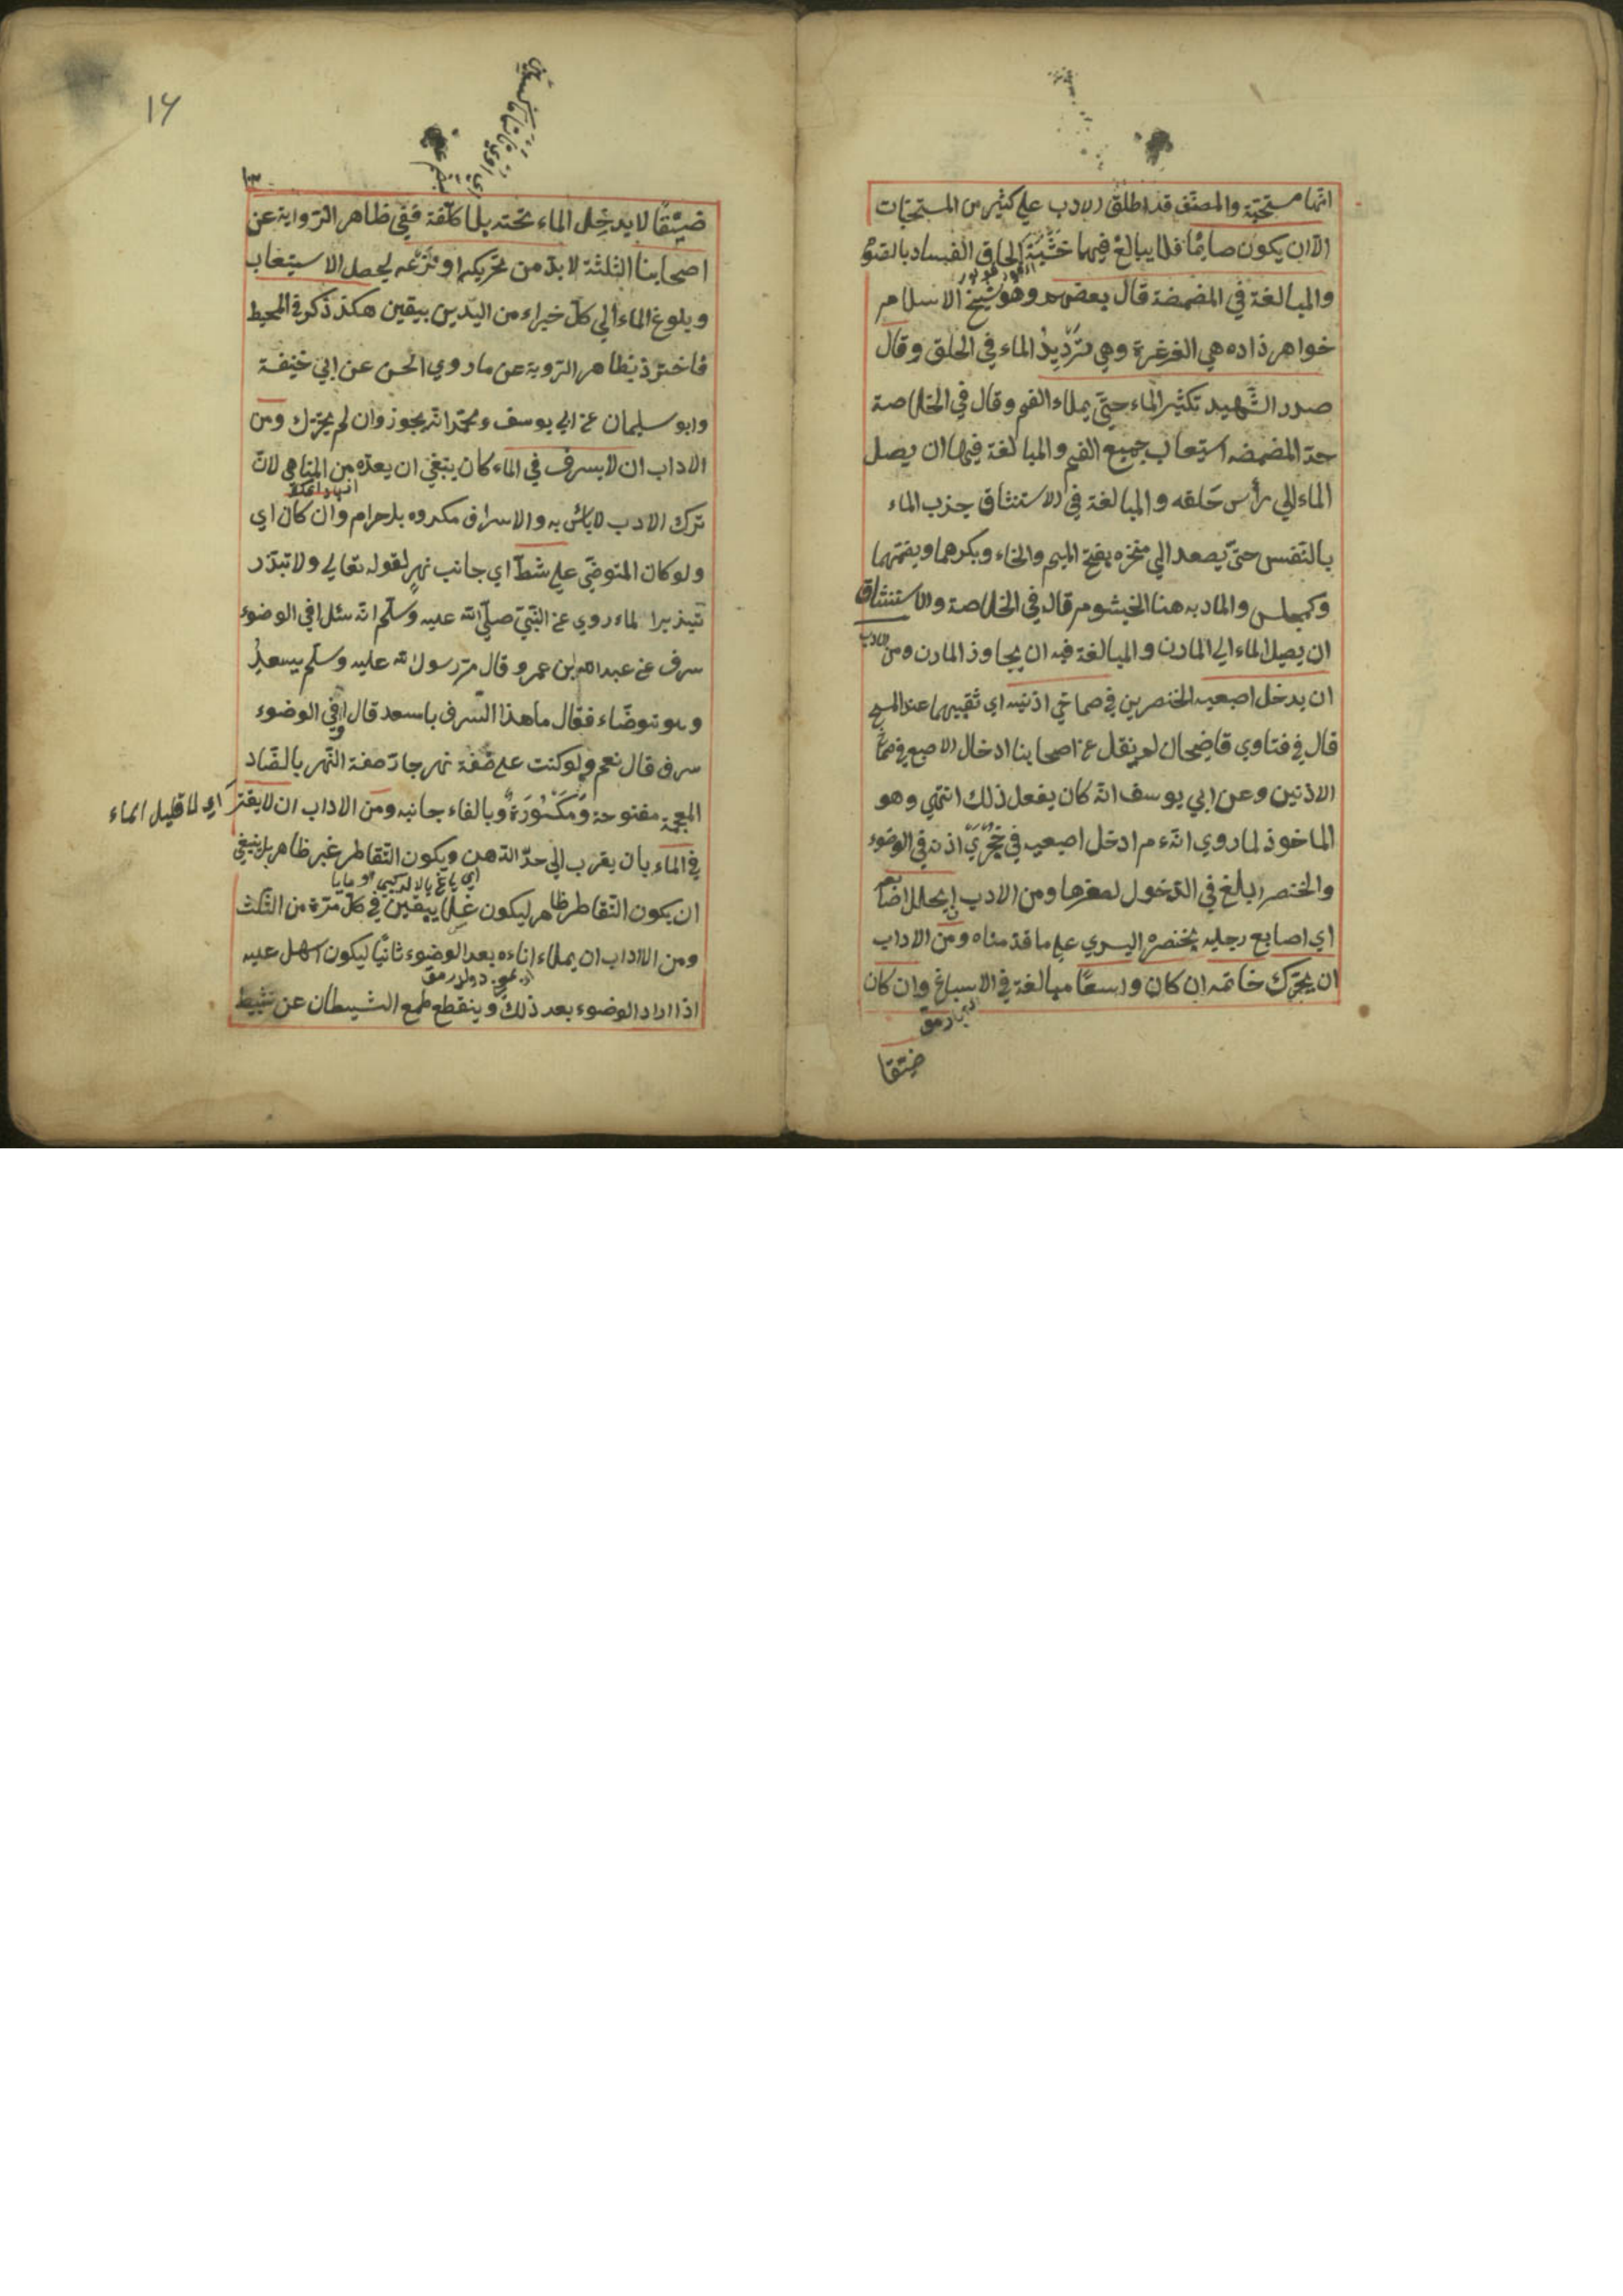 انها مستحبّة والمصنّف قد اطلق الادب علي كثير من المستحبّات
الّا ان يكون صائما فلا يبالغ فيهما خَشْيَةَ الحاق الفساد بالصّوم
والمبالغة في المضمضة قال بعضهم وهو شيخ الاسلام
خواهر ذاده هي الغرغرة وهي تَرْدِيدُ الماء في الحلق وقال
صدر الشّهيد تكثير الماء حتّي يملاء الفم وقال في الخلاصة
حدّ المضمضه استيعاب جميع الفم والمبالغة فيها ان يصل
الماء الي رأس حَلقه والمبالغة في الاستنثاق جذب الماء
بالنّفس حتّي يصعد الي منخره بفتح الميم والخاء وبكرهما وبضمّهما
وكمجلس والماد به هنا الخيشوم قال في الخلاصة والاستنثاق
ان يصل الماء الي المارن والمبالغة فيه ان يجاوذ المارن ومن الادب
ان يدخل اصبعيه الخنصرين في صماخي اذنيه اي ثقبيهما عند المسح
قال في فتاوي قاضيخان لم ينقل عن اصحابنا ادخال الاصبع في صماخ
الاذنين وعن ابي يوسف انّه كان يفعل ذلك انتهي وهو
الماخوذ لما روي انّه ءم ادخل اصبعيه في جُحْرَيْ اذنه في الوضوء
والخنصر ابلغ في الدّخول لصغرها ومن الادب ان يخلل اصابعه
اي اصابع رجليه بخنصره اليسري علي ما قدّمناه ومن الاداب
ان يحرّك خاتمه ان كان واسعًا مبالغة في الاسباغ وان كان
ضيّقا
١٦
ضيّقًا لا يدخِل الماء تحته بلا كلفة ففي ظاهر الرّواية عن
اصحابنا الثلثة لا بدّ من تحريكه او نَزْعه ليحصل الاستيعاب
وبلوغ الماء الي كلّ خبراء من اليدين بيقين هكذ ذكر في المحيط
فاخترذ بظاهر الرّوية عن ما روي الحسن عن ابي خنيفة
وابو سليمان عن ابي يوسف ومحمّد انّه يجوز وان لم يحرّك ومن
الاداب ان لا يسرف في الماء كان ينبغي ان يعدّه من المناهي لانّ
ترك الادب لا بائس به والاسراف مكروه بل حرام وان كان اي
ولو كان المتوضّي علي شطّ اي جانب نهرٍ لقوله تعالي ولا تبذّر
تبذيرا لماء روي عن النّبيّ صلّي الله عليه وسلّم انّه سئل افي الوضوء
سرف عن عبد الله بن عمرو قال مرّ رسول الله عليه وسلّم بسعدٍ
وهو يتوضّاء فقال ما هذا السّرف يا سعد قال اوفي الوضوء
سرف قال نعم ولو كنت علي ضَفّة نهر جار ضفة النّهر بالضّاد
المعجمة مفتوحة وَمَكْسُورَةً وبالفاء جانبه ومن الاداب ان لا يقتر
اي لا قليل الماء
في الماء بان يقرب الي حدّ الدّهن ويكون التّقاطر غير ظاهر بل ينبغي
ان يكون التّقاطر ظاهر ليكون غسلا بيقين في كلّ مرّة من الثّلث
ومن الاداب ان يملاء اناءه بعد الوضوء ثانيًا ليكون اسهل عليه
اذا اراد الوضوء بعد ذلك وينقطع طمع الشيطان عن تثبيط